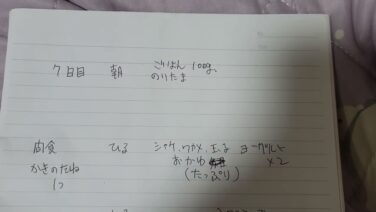 7日目 朝 ごはん 100g
のりたま
間食 ひる シャケ、ワカメ、玉子 ヨーグルト
かきのたね おかゆ ×2
1つ (たっぷり)